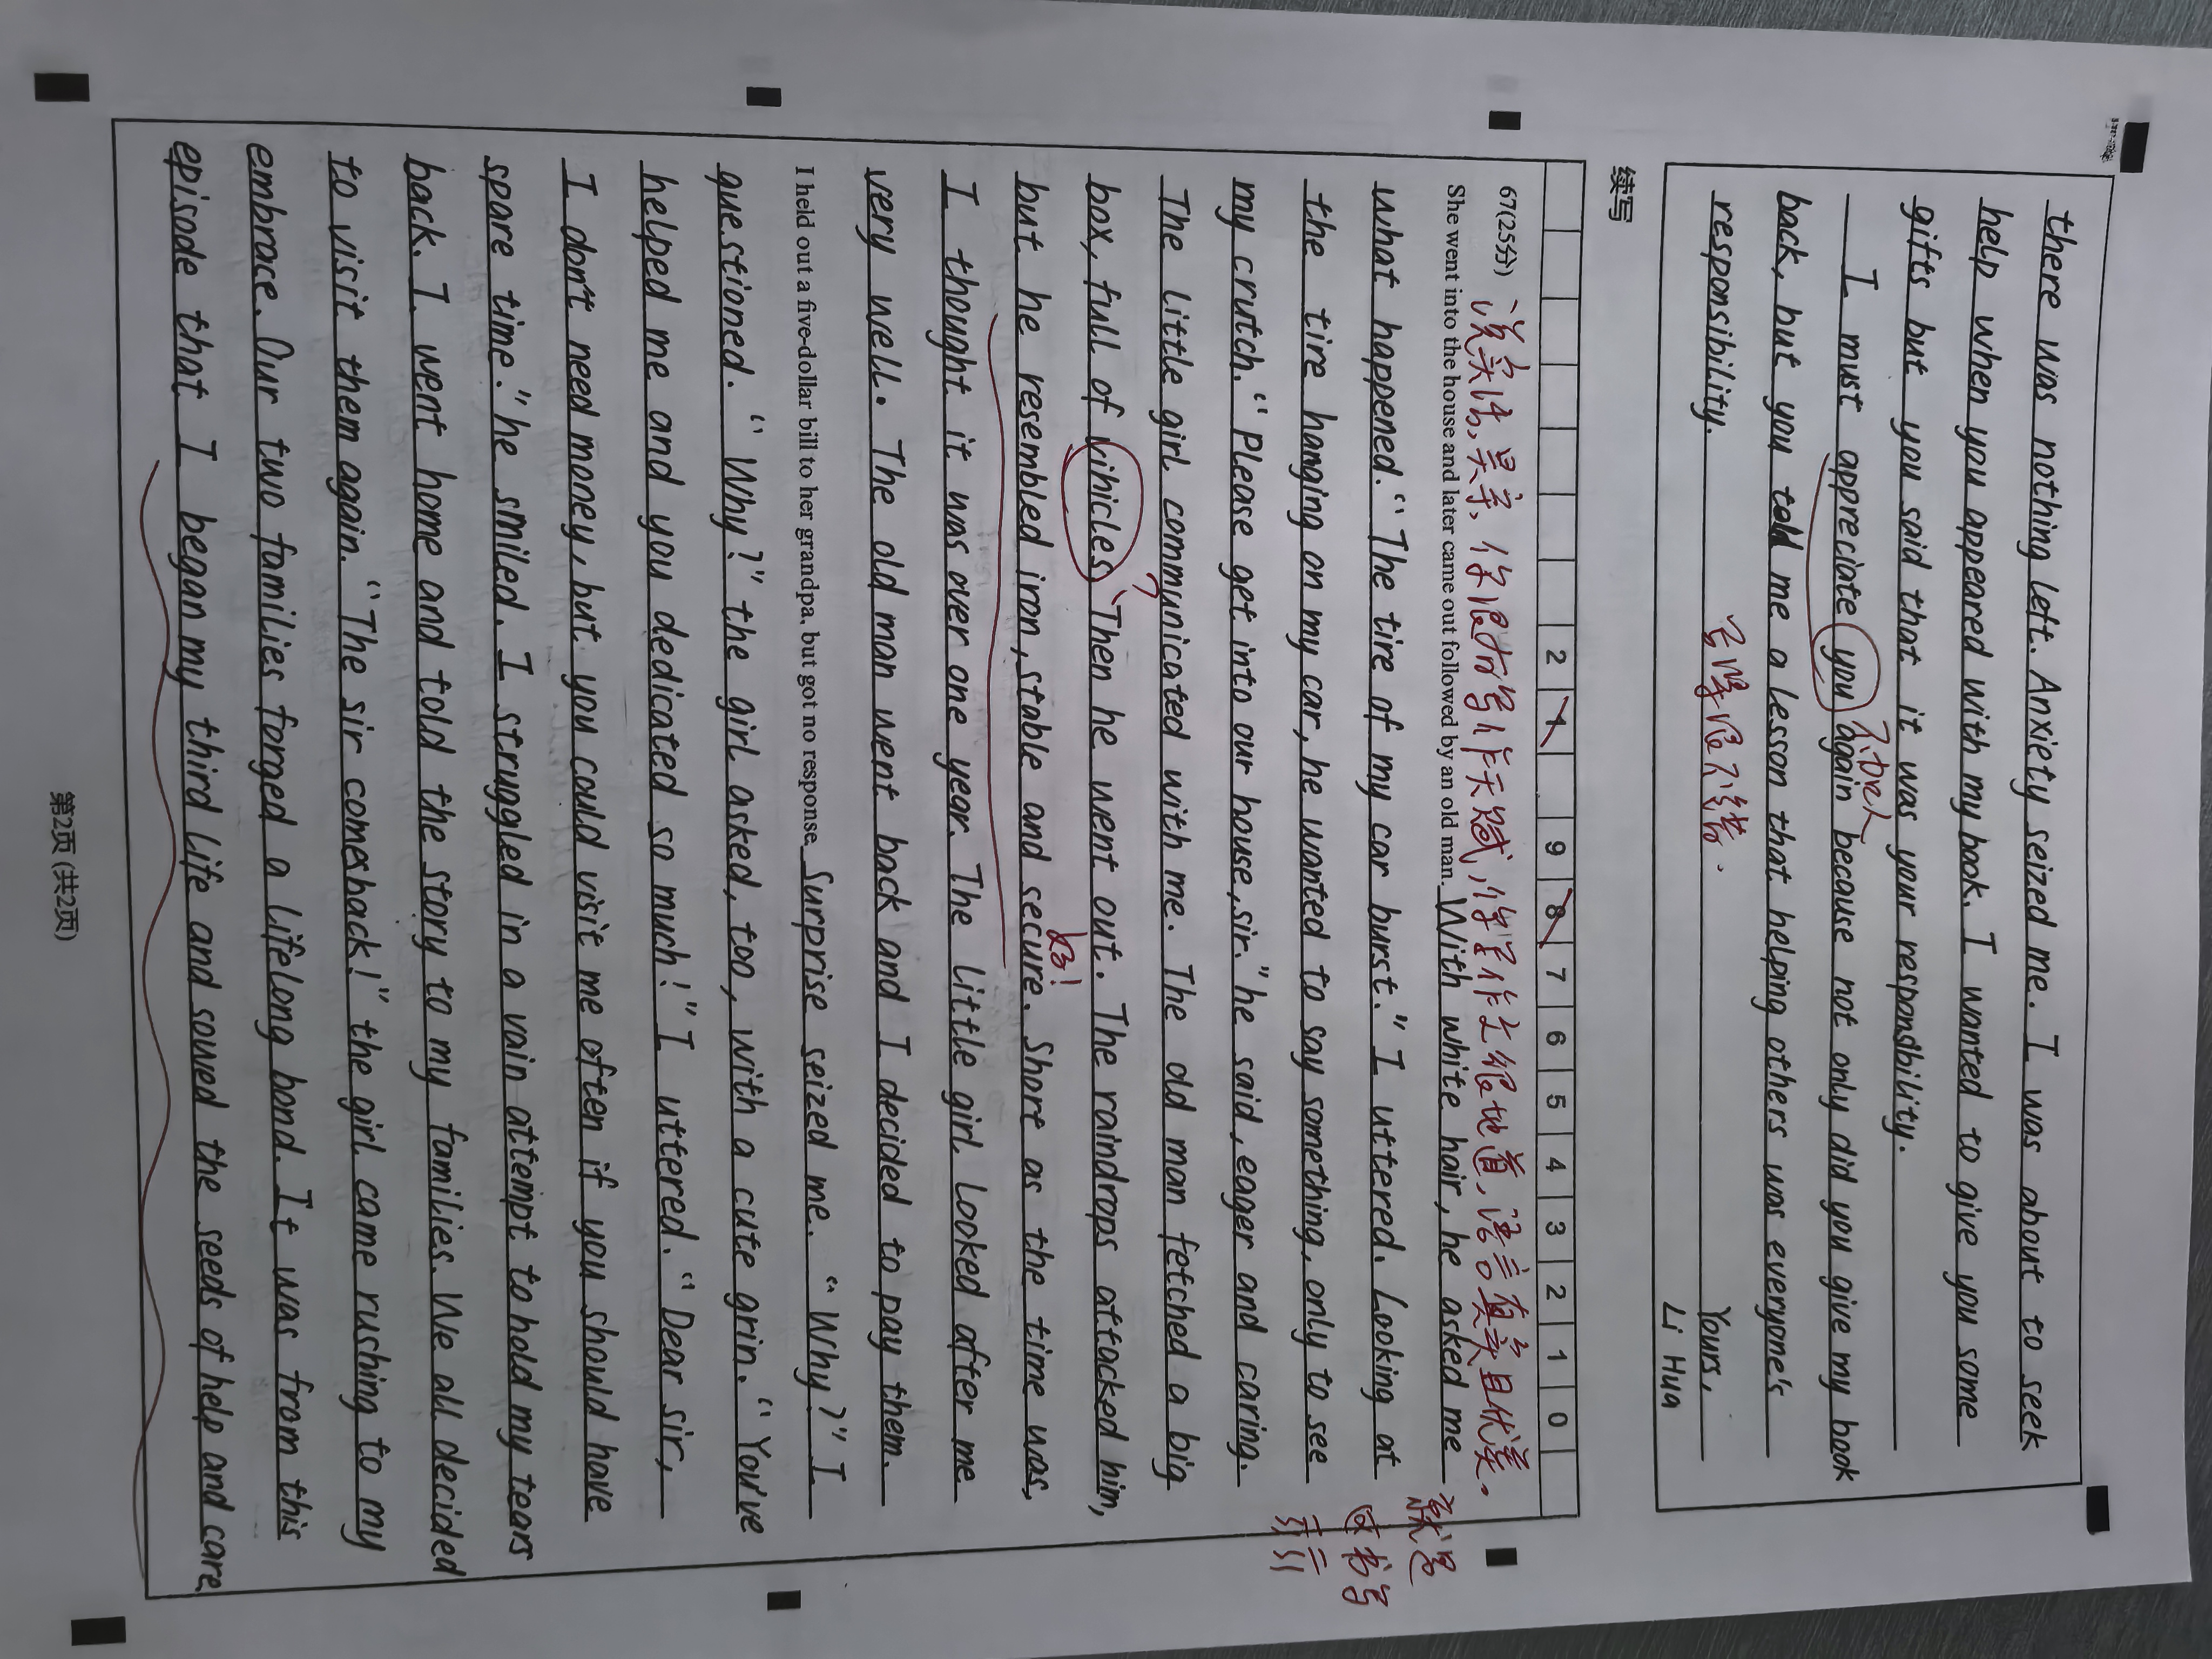 there was nothing left. Anxiety seized me. I was about to seek
help when you appeared with my book. I wanted to give you some
gifts but you said that it was your responsbility.
不加人
I must appreciate you again because not only did you give my book
back, but you told me a lesson that helping others was everyone's
responsibility.
Yours,
Li Hua
续写
2 1 9 8 7 6 5 4 3 2 1 0
67(25分) 说实话,昊宗,你很有写作天赋,你写作文很地道,语言真实且优美。
就是
She went into the house and later came out followed by an old man. With white hair, he asked me
what happened. "The tire of my car burst." I uttered. Looking at
the tire hanging on my car, he wanted to say something, only to see
my crutch. "Please get into our house, sir." he said, eager and caring.
The little girl communicated with me. The old man fetched a big
?
box, full of vihicles. Then he went out. The raindrops attacked him,
好!
but he resembled iron, stable and secure. Short as the time was,
I thought it was over one year. The little girl looked after me
very well. The old man went back and I decided to pay them.
I held out a five-dollar bill to her grandpa, but got no response. Surprise seized me. "Why?" I
questioned. "Why?" the girl asked, too, with a cute grin. "You've
helped me and you dedicated so much!" I uttered. "Dear sir,
I don't need money, but you could visit me often if you should have
spare time." he smiled. I struggled in a vain attempt to hold my tears
back. I went home and told the story to my families. We all decided
to visit them again. "The sir comesback!" the girl came rushing to my
embrace. Our two families forged a lifelong bond. It was from this
episode that I began my third life and sowed the seeds of help and care.
第2页 (共2页)